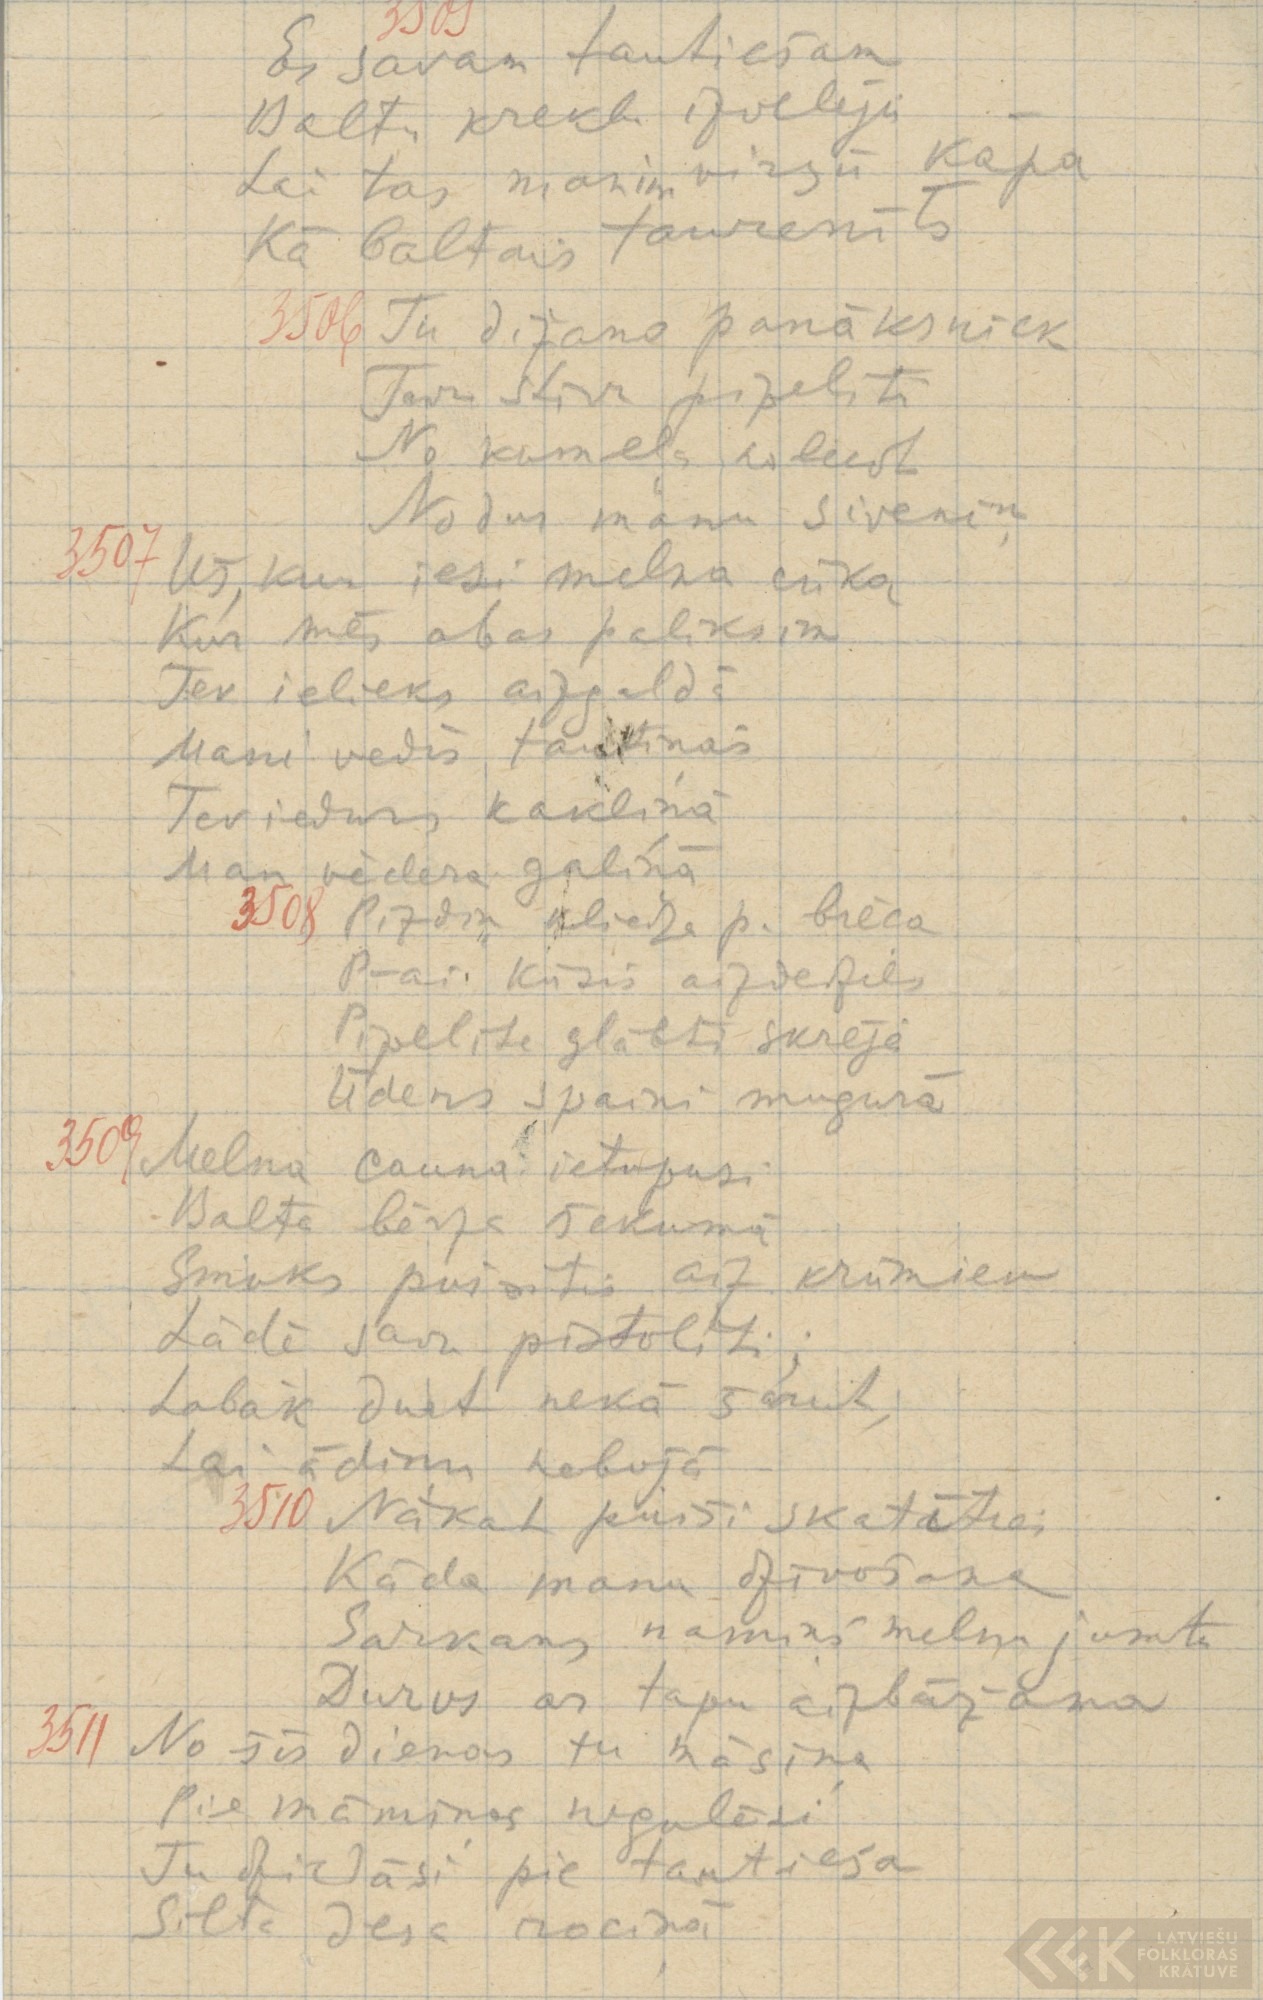 3505
Es savam tautiešam
Baltu kreklu izvelēju
Lai tas manim virsū kāpa
Kā baltais taurenīts
3506 Tu dižano panāksniek
Tavu stīvu pipelīti
No kumeļa nolecot
Nodur mānu siveniņ
3507 Uš, kur iesi melna cūka
Kur mēs abas paliksim
Tev ieliks aizgaldā
Mani vedīs tautiņās
Tev iedurs kakliņā
Man vēdera galiņā
3508 Pizdiņ kliedza p. brēca
P-ai. kūsis aizdedzies
Pipelīte glābti skrēja
Ūdens spaiņi mugurā
3509 Melna cauna ietupusi
Balta bērza sekumā
Smuks puisītis aiz krūmiem
Lādē savu pistolīti;
Labāk durt nekā šaut,
Lai ādiņu nebojā
3510 Nākat puiši skatāties
Kāda manu dzīvošana
Sarkans namiņš melnu jumtu
Durvs ar tapu aizbāžama
3511 No šīs dienas tu māsiņa
Pie māmiņas negulēsi
Tu dziedāsi pie tautieša
Silta desa rociņā
LATVIEŠU
FOLKLORAS
KRĀTUVE